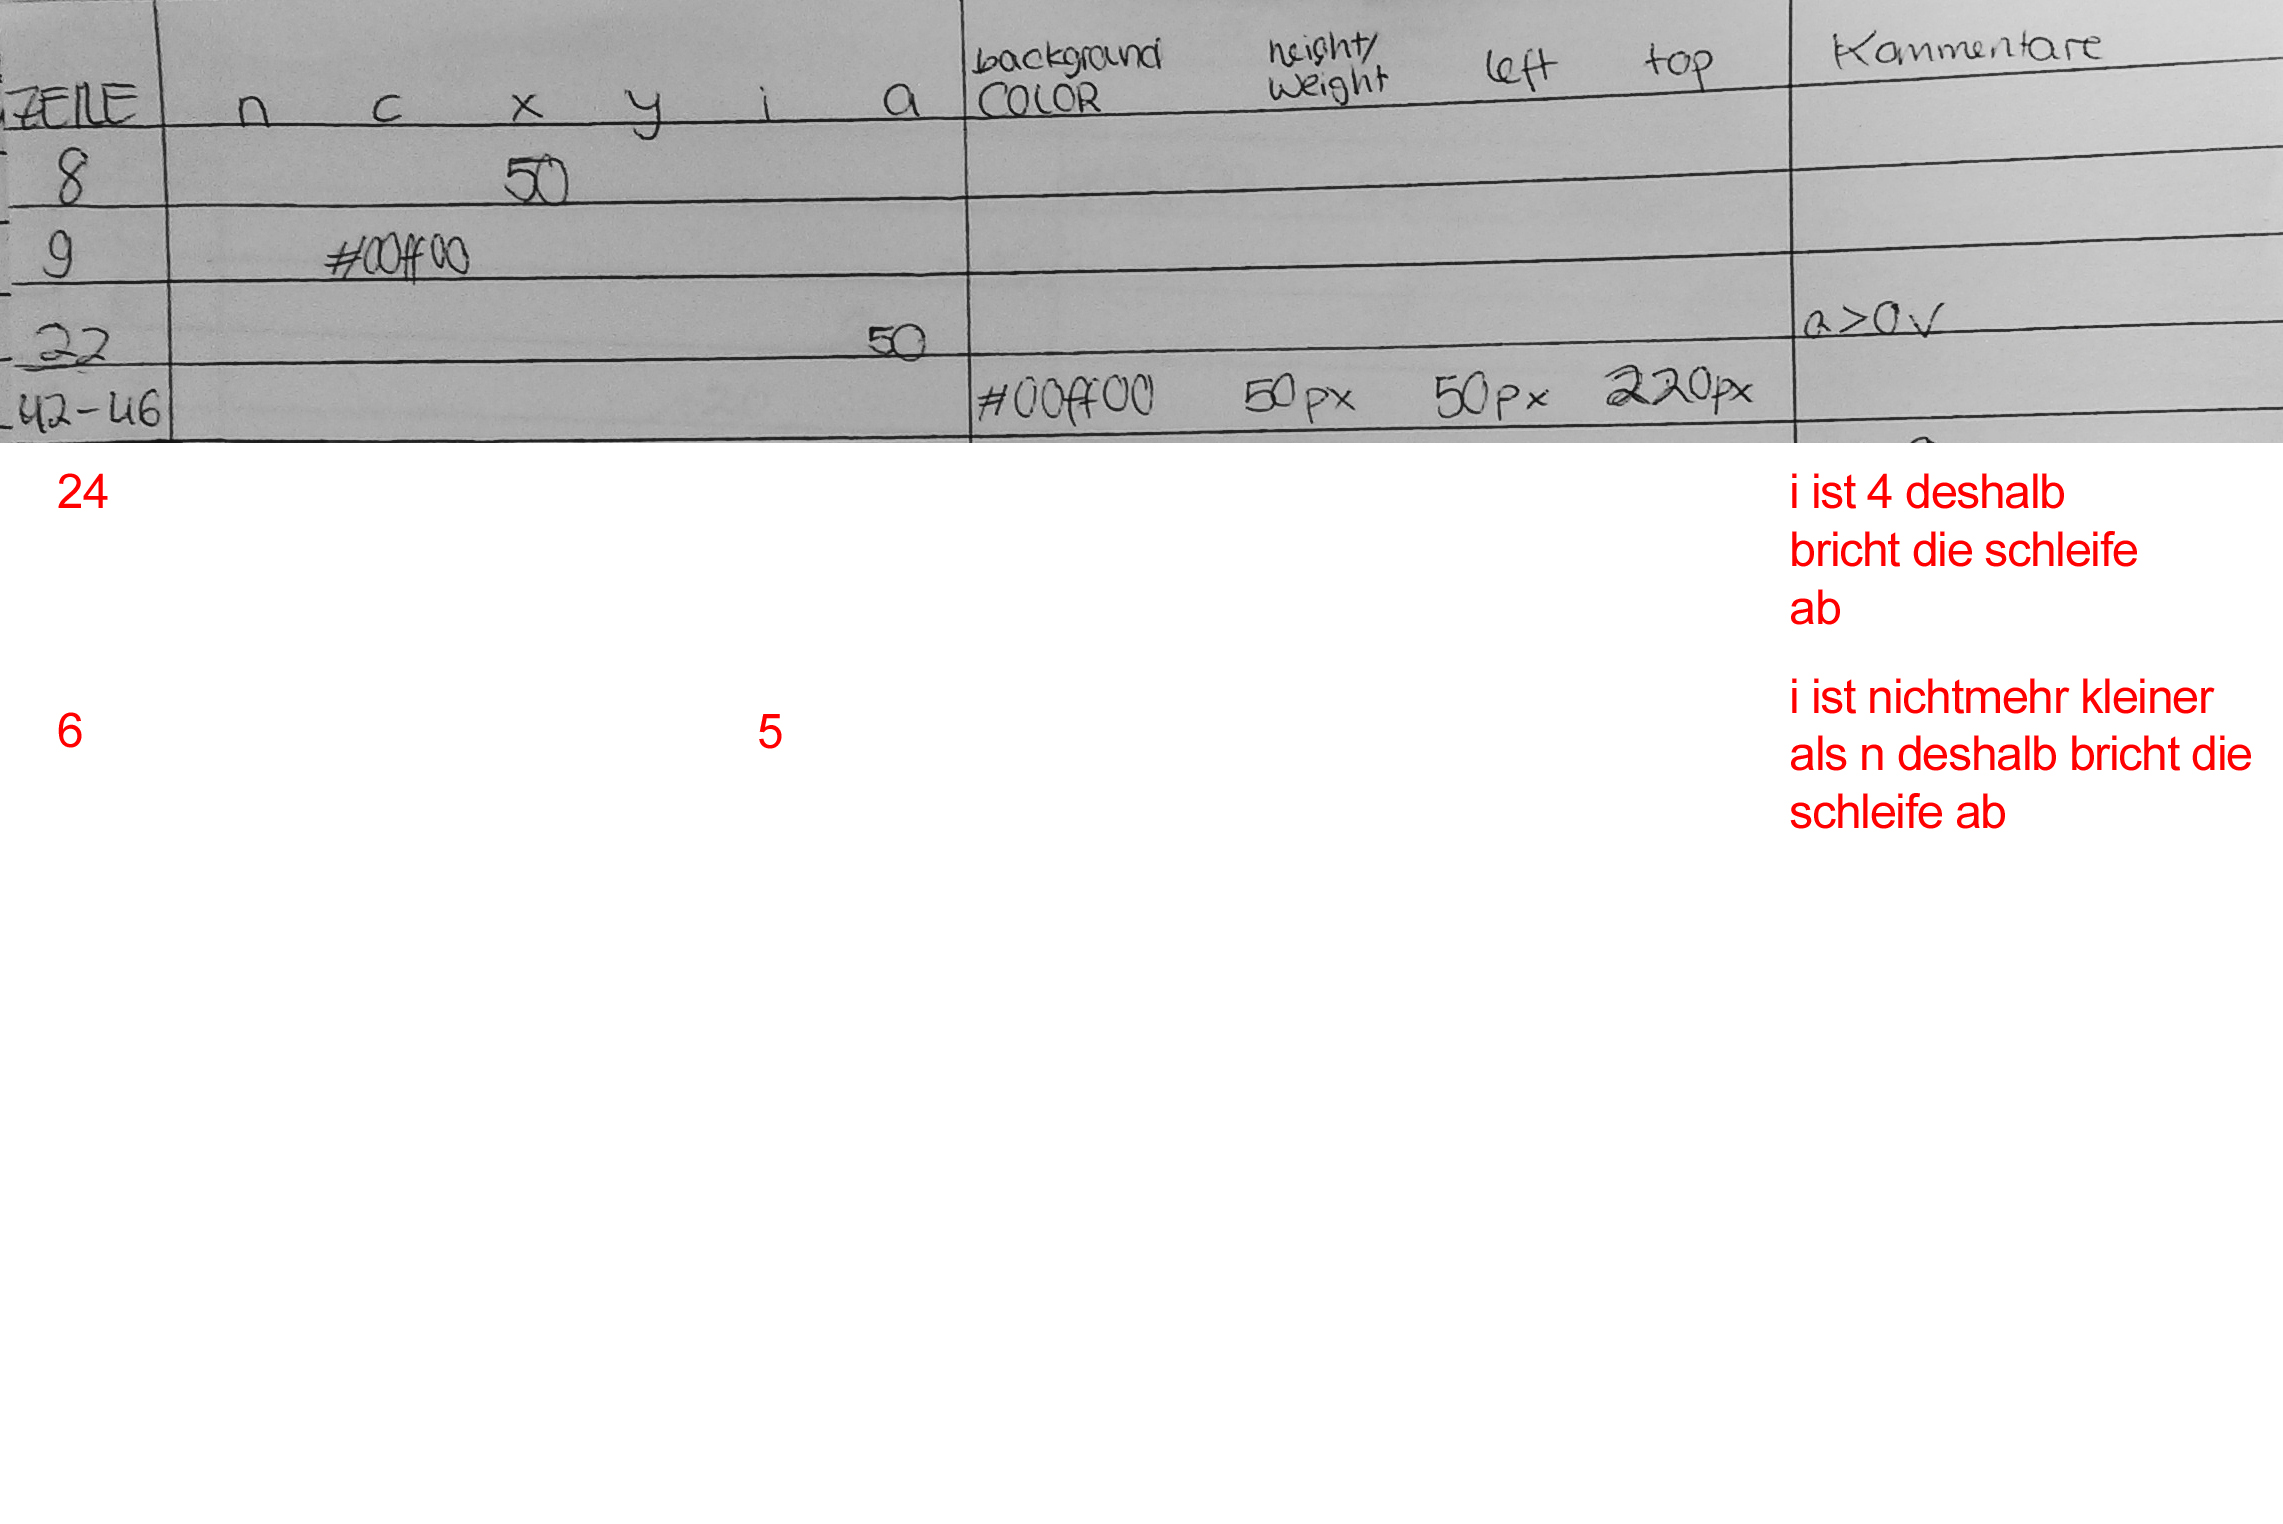 ZEILE n c x y i a background COLOR height/ weight left top Kommentare
8 50
9 #00ff00
22 50 a>0 ✓
42-46 #00ff00 50px 50px 220px
24 i ist 4 deshalb
bricht die schleife
ab
i ist nichtmehr kleiner
6 5 als n deshalb bricht die
schleife ab